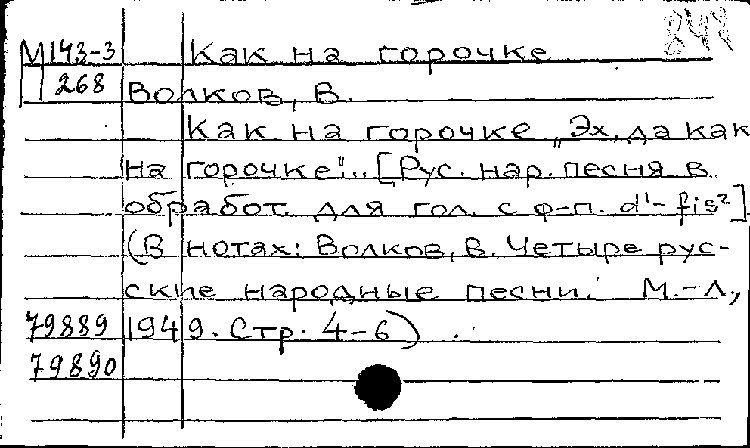 М 143-3 Как на горочке
268
Волков, В.
Как на горочке „Эх, да как
на горочке"... [Рус. нар. песня в
обработ. для гол. с ф-п. d¹-fis²]
(В нотах: Волков, В. Четыре рус-
ские народные песни. М.-Л.,
79889 1949. Стр. 4-6)
79890